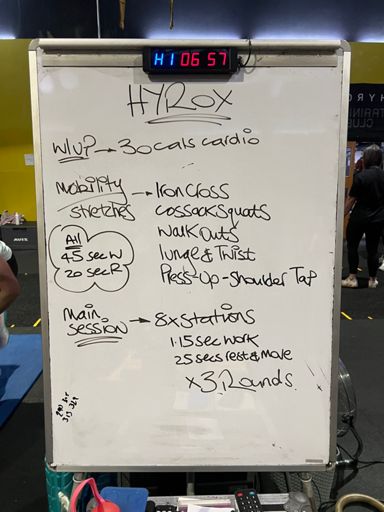 H1 06 57
HYROX
W/U? → 30 cals cardio
Mobility → Iron Cross
stretches
Cossack Squats
Walk Outs
Lunge & Twist
Press-Up-Shoulder Tap
All
45 sec W
20 sec R
Main
session → 8x stations
1.15 sec work
25 secs rest & move
x3 Rounds.